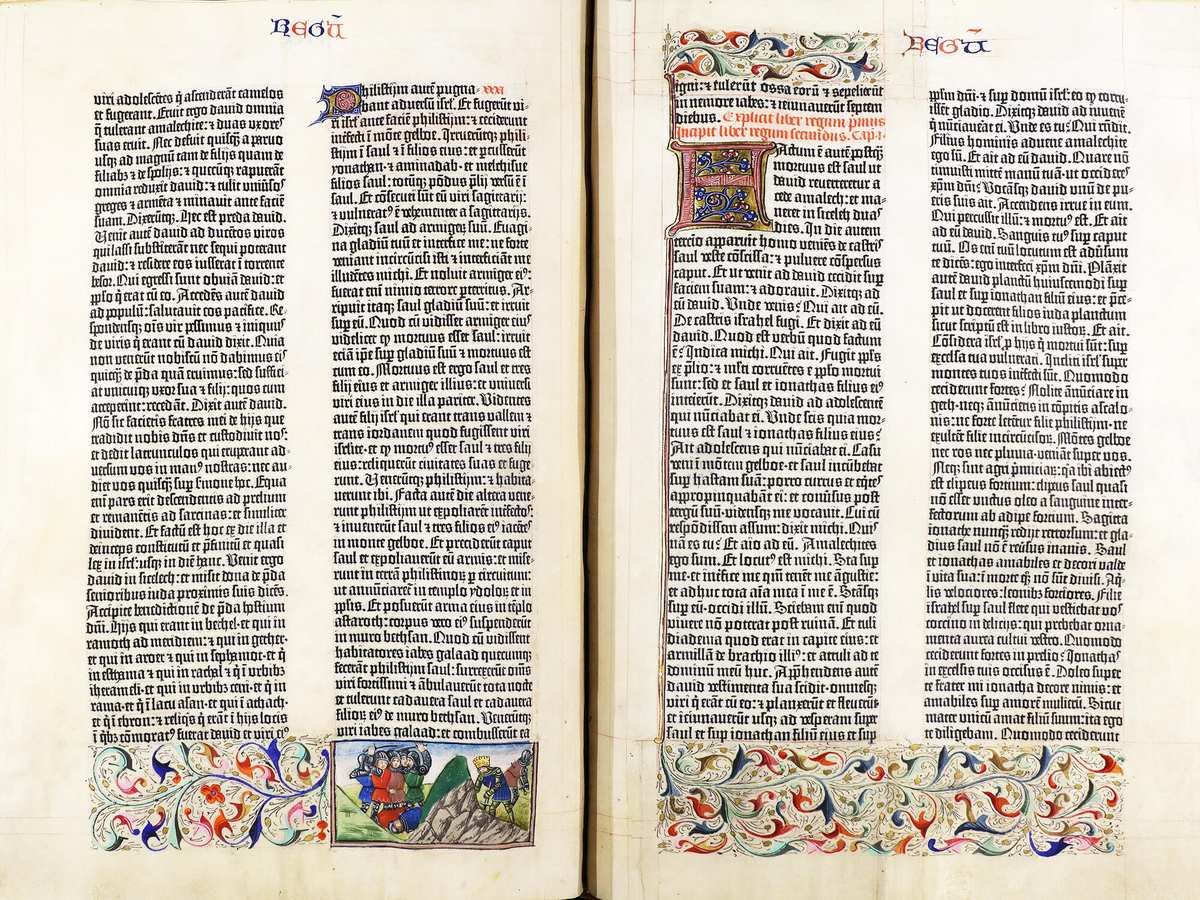 REGŪ
viri adolescētes q̄ ascenderāt camelos
et fugerant. Eruit ergo david omnia
q̄ tulerant amalechite: ⁊ duas uxores
suas eruit. Nec defuit quicq̄ a parvo
usq; ad magnū tam de filijs quam de
filiab; ⁊ de spolijs: ⁊ quecūq; rapuerāt
omnia reduxit david: ⁊ tulit universos
greges ⁊ armēta ⁊ minavit ante faciē
suam. Dixerūtq;. Hec est preda david.
Venit autē david ad ducētos viros
qui lassi substiterāt nec sequi poterant
david: ⁊ residere eos iusserat ī torrente
besor. Qui egressi sunt obviā david: et
pp̄lo q̄ erat cū eo. Accedēs autē david
ad populū: salutavit eos pacifice. Re-
spondensq; oīs vir pessimus ⁊ iniquus
de viris q̄ erant cū david dixit. Quia
non venerūt nobiscū nō dabimus eis
quicq̄ de p̄da quā eruimus: sed suffici-
at unicuiq; uxor sua ⁊ filij: quos cum
acceperint: recedāt. Dixit autē david.
Nō sic facietis fratres mei de hijs que
tradidit nobis dn̄s et custodivit nos:
et dedit latrunculos qui eruperant ad-
versum vos in manus nostras: nec au-
diet vos quisq̄ super sermone hoc. Equa
eni pars erit descendentis ad prelium
et remanētis ad sarcinas: et similiter
divident. Et factū est hoc ex die illa et
deinceps constitutū et p̄finitū et quasi
lex in isrl̄: usq; in diē hanc. Venit ergo
david in sicelech: et misit dona de p̄da
senioribus iuda proximis suis dicēs.
Accipite benedictionē de p̄da hostium
dn̄i. Hijs qui erant in bethel et qui in
ramoth ad meridiem: ⁊ qui in gether·
et qui in aroer ⁊ qui in sephamoth et q̄
in esthama ⁊ qui in rachal ⁊ q̄ ī urbib;
iherameli· et qui in urbib; ceni· et q̄ in
rama· et q̄ ī lacu asan· et qui ī athach·
et q̄ ī ebron: ⁊ reliq̄s q̄ erāt ī hijs locis
ī q̄b; cōmoratus fuerat david et viri eius
Philistijm autē pugna- xxxi
bant adversū isrl̄. Et fugerūt vi-
ri isrl̄ ante faciē philistijm: ⁊ ceciderunt
interfecti ī mōte gelboe. Irrueruntq; phili-
stijm ī saul ⁊ ī filios eius: et percusserūt
yonathan· ⁊ aminadab· et melchisue
filios saul: totūq; pōdus p̄lij versū ē ī
saul. Et cōsecuti sūt eū viri sagittarij:
⁊ vulneratus ē vehementer a sagittarijs.
Dixitq; saul ad armigerū suū. Evagi-
na gladiū tuū et interfice me: ne forte
veniant incircūcisi isti ⁊ interficiāt me
illudētes michi. Et noluit armiger eius:
fuerat eni nimio terrore pterritus. Ar-
ripuit itaq; saul gladiū suū: et irruit
super eū. Quod cū vidisset armiger eius
videlicet q̄ mortuus esset saul: irruit
eciā ip̄e super gladiū suū ⁊ mortuus est
cum eo. Mortuus est ergo saul et tres
filij eius et armiger illius: et universi
viri eius in die illa pariter. Videntes
autē filij isrl̄ qui erant trans vallem ⁊
trans iordanem quod fugissent viri
israelite· et q̄ mortuus esset saul: ⁊ tres filij
eius: reliquerūt civitates suas et fuge-
runt. Veneruntq; philistijm: ⁊ habita-
verunt ibi. Facta autē die altera vene-
runt philistijm ut expoliarent interfectos:
⁊ invenerūt saul ⁊ tres filios eius iacētes
in monte gelboe. Et preciderūt caput
saul et expoliaverūt eū armis: et mise-
runt in terrā philistinorū per circuitum:
ut annūciaret̄ in templo ydolorū et in
pp̄lis. Et posuerūt arma eius in tēplo
astaroth: corpus vero eius suspenderūt
in muro bethsan. Quod cū vidissent
habitatores iabes galaad quecumq;
fecerāt philistijm saul: surrexerūt om̄s
viri fortissimi ⁊ ābulaverūt tota nocte
et tulerunt cadaver saul et cadavera
filiorū eius de muro bethsan. Veneruntq;
viri iabes galaad: et combusserūt ea
REGŪ
igni: ⁊ tulerūt ossa eorū ⁊ sepelierūt
in nemore iabes: ⁊ ieiunaverūt septem
diebus. Explicit liber regum primus
Incipit liber regum secundus. Cap. i.
Factum ē autē postq̄
mortuus est saul ut
david reverteretur a
cede amalech: et ma-
neret in sicelech duas
dies. In die autem
tercio apparuit homo veniēs de castris
saul veste cōscissa: ⁊ pulvere cōspersus
caput. Et ut venit ad david cecidit super
faciem suam: ⁊ adoravit. Dixitq; ad
eū david. Unde venis? Qui ait ad eū.
De castris israhel fugi. Et dixit ad eū
david. Quod est verbū quod factum
ē? Indica michi. Qui ait. Fugit pp̄ls
ex p̄lio: ⁊ multi corruētes e pp̄lo mortui
sunt: sed et saul et ionathas filius eius
interierūt. Dixitq; david ad adolescentē
qui nūciabat ei. Unde scis quia mor-
tuus est saul ⁊ ionathas filius eius?
Ait adolescens qui nūciabat ei. Casu
veni ī mōtem gelboe· et saul incūbebat
super hastam suā: porro currus et eq̄tes
appropinquabāt ei: et cōversus post
tergū suū· vidensq; me vocavit. Cui cū
respōdissem assum: dixit michi. Quis
nā es tu? Et aio ad eū. Amalechites
ego sum. Et locutus est michi. Sta super
me· et interfice me q̄m tenēt me āgustie:
et adhuc tota aīa mea ī me ē. Stāsq;
super eū· occidi illū. Sciebam eni quod
vivere nō poterat post ruinā. Et tuli
diadema quod erat in capite eius: et
armillā de brachio illius: et attuli ad te
dominū meū huc. Apprehendens autē
david vestimenta sua scidit· omnesq;
viri q̄ erāt cū eo: ⁊ planxerūt et fleverūt
et ieiunaverūt usq; ad vesperam super
saul et super ionathan filiū eius et super
pp̄lm dn̄i· ⁊ super domū isrl̄: eo q̄ corru-
issēt gladio. Dixitq; david ad iuvenē
q̄ nūciaverat ei. Unde es tu? Qui rn̄dit.
Filius hominis advene amalechite
ego sū. Et ait ad eū david. Quare nō
timuisti mittē manū tuā· ut occideres
xp̄m dn̄i? Vocāsq; david unū de pu-
eris suis ait. Accedens irrue in eum.
Qui percussit illū: ⁊ mortuus est. Et ait
ad eū david. Sanguis tuus super caput
tuū. Os eni tuū locutum est adūsum
te dicēs: ego interfeci xp̄m dn̄i. Plāxit
autē david planctū huiuscemodi super
saul et super ionathan filiū eius: et p̄ce-
pit ut docerent filios iuda planctum
sicut scriptū est in libro iustorū. Et ait.
Cōsidera isrl̄ p̄ hijs q̄ mortui sūt: super
excelsa tua vulnerati. Incliti isrl̄ super
montes tuos interfecti sūt. Quomodo
ceciderunt fortes? Nolite ānūciare in
geth· neq; ānūcietis in cōpitis ascalo-
nis: ne forte letētur filie philistijm· ne
exultēt filie incircūcisorū. Mōtes gelboe
nec ros nec pluvia· veniāt super vos.
Neq; sint agri p̄miciarū: q̄a ibi abiectus
est clipeus fortium: clipeus saul quasi
nō esset unctus oleo a sanguine inter-
fectorum ab adipe fortium. Sagitta
ionathe nunq̄ redijt retrorsum: et gla-
dius saul nō ē reversus inanis. Saul
et ionathas amabiles et decori valde
ī vita sua: ī morte q̄ nō sūt divisi. Aq̄-
lis velociores: leonibus forciores. Filie
israhel super saul flete qui vestiebat vos
coccino in delicijs: qui prebebat orna-
menta aurea cultui vestro. Quomodo
ceciderunt fortes in prelio? Ionathas
in excelsis tuis occisus ē. Doleo super
te frater mi ionatha decore nimis: et
amabilis super amorē mulierū. Sicut
mater unicū amat filiū suum: ita ego
te diligebam. Quomodo ceciderunt